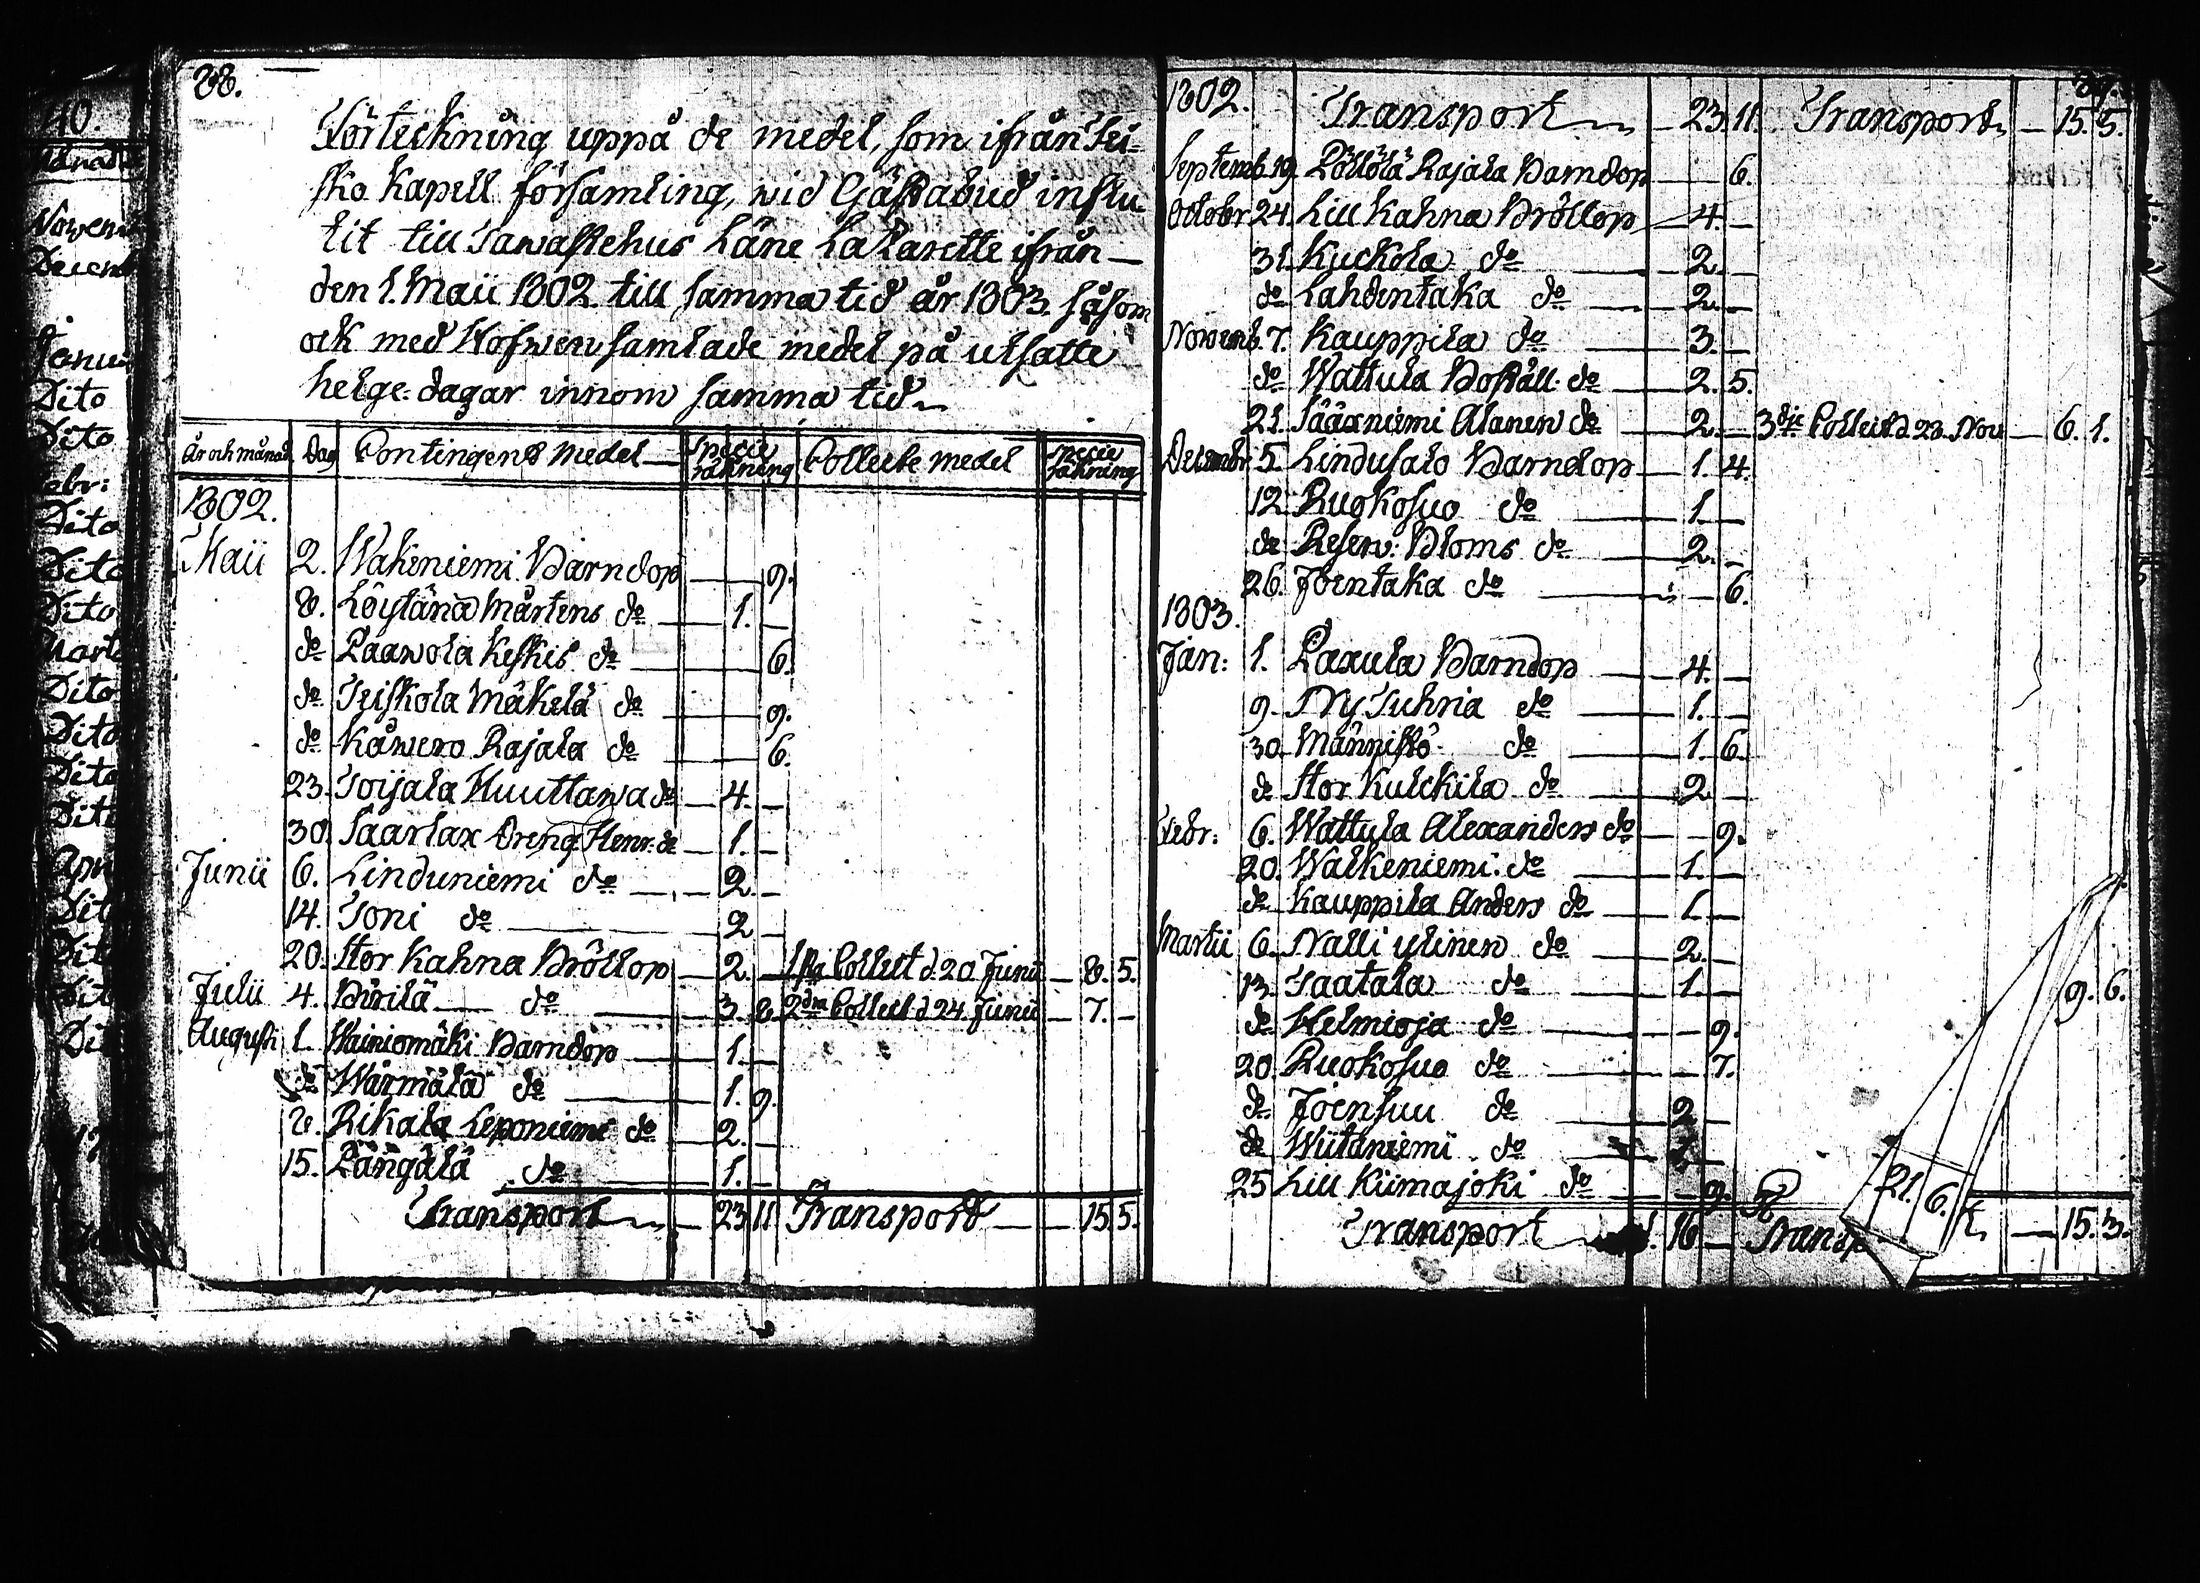 88.
Förteckning uppå de medel, som ifrån Tei-
sko Kapell församling, wid Gästabud influ
tit till Tawastehus Läne Lazarette ifrån
den 1. Maii 1802 till samma tid år 1803. såsom
ock med Hofwen samlade medel på utsatte
helge-dagar innom samma tid
År och månad Dag Contingent medel Specie räkning Collecte medel Specie räkning
1802.
Maii 2. Wakeniemi Barndop — 9.
8. Löytänä Mårtens do 1. —
do Paawola Keskis do — 6.
do Teiskola Mäkelä do — 9.
do Kåwero Rajala do — 6.
23. Toijala Huuttawa do 4. —
30. Saarlax Dreng Henr. do 1. —
Junii 6. Linduniemi do 2. —
14. Toni do 2 —
20. Stor Kahna Bröllop 2. — 1sta Collect d. 20 Junii — 8. 5.
Julii 4. Pirilä do 3. 8. 2dra Collect d. 24 Junii — 7. —
Augusti 1. Wainiomäki Barndop 1. —
do Wärmälä do 1. 9.
8. Rikala Leponiemi do 2. —
15. Pängälä do 1. —
Transport 23. 11 Transport — 15. 5.
1802. Transport — 23. 11. Transport — 15. 5.
Septemb. 19. Pöllölä Rajala Barndop — 6.
Octobr 24. Lill Kahna Bröllop 4. —
31. Kuckola do 2. —
do Lahdentaka do 2. —
Novemb. 7. Kauppila do 3. —
do Wattula Boställ do 2. 5.
21. Sääxniemi Alanen do 2. — 3die Collect d. 23 Nov — 6. 1.
Decembr 5. Lindusalo Barndop 1. 4.
12. Ruokosuo do 1. —
do Reserv. Bloms do 2. —
26. Joentaka do — 6.
1803.
Jan: 1. Paxula Barndop 4. —
9. Ny Tuhria do 1. —
30. Männistö do 1. 6.
do Stor Kulckila do 2. —
Febr: 6. Wattula Alexanders do — 9.
20. Walkeniemi do 1. —
do Kauppila Anders do 1. —
Martii 6. Nalli ylinen do 2. —
13. Taatala do 1. — 9. 6.
do Helmioja do — 9.
20 Ruokosuo do — 7.
do Joensuu do 2 —
do Wiitaniemi do —
25 Lill Kiimajoki do — 9. 21. 6.
Transport 16 — Transp — 15. 3.
40.